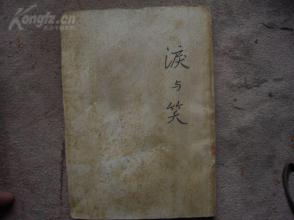 Kongfz.cn
淚
与
笑